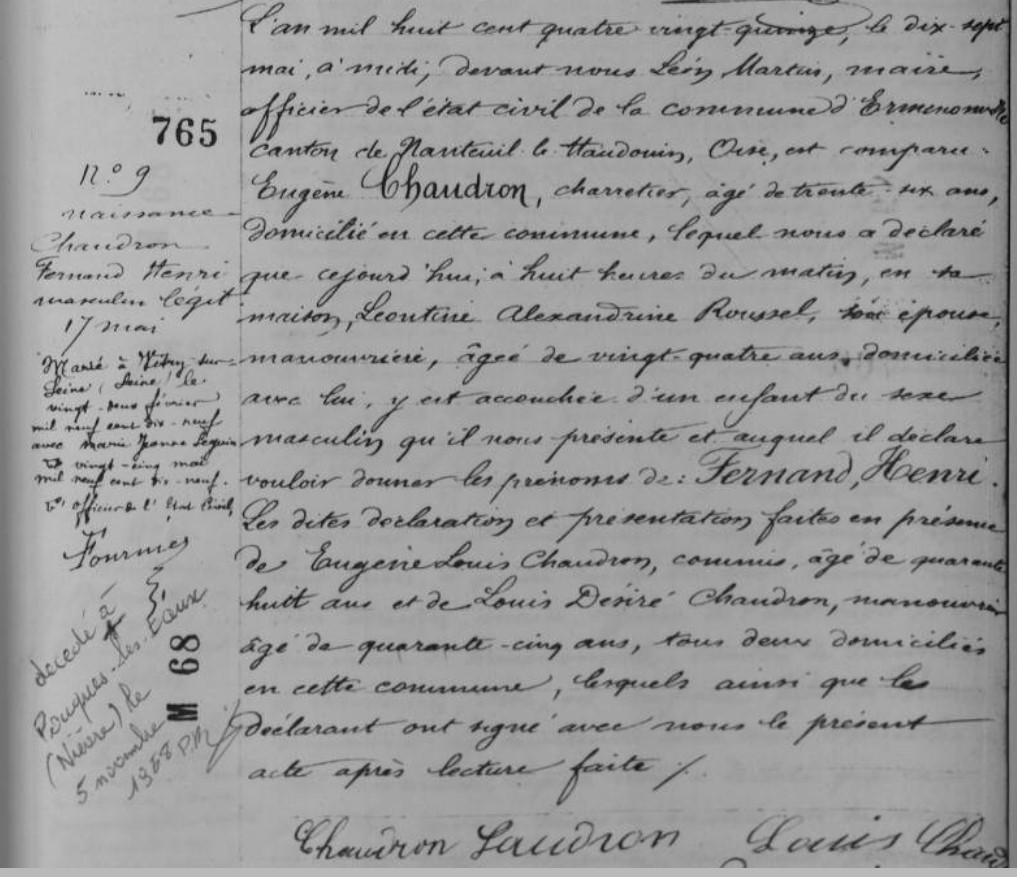 765
N° 9
naissance
Chaudron
Fernand Henri
masculin légit
17 mai
Marié à Vitry-sur-
Seine (Seine) le
vingt-deux février
mil neuf cent dix-neuf
avec Marie Jeanne Seguin
Le vingt-cinq mai
mil neuf cent dix-neuf.
L' officier de l'Etat Civil,
Fournier
decedé à
Pougues-les-Eaux
(Nièvre) le
5 novembre
1968
M 68
L'an mil huit cent quatre vingt-quinze, le dix-sept
mai, à midi, devant nous Léon Martin, maire,
officier de l'état civil de la commune d'Ermenonville
canton de Nanteuil le Haudouin, Oise, est comparu:
Eugène Chaudron, charretier, âgé de trente-six ans,
domicilié en cette commune, lequel nous a déclaré
que cejourd'hui, à huit heures du matin, en sa
maison, Léontine Alexandrine Roussel, son épouse,
manouvrière, âgée de vingt-quatre ans, domiciliée
avec lui, y est accouchée d'un enfant du sexe
masculin qu'il nous présente et auquel il déclare
vouloir donner les prénoms de: Fernand, Henri.
Les dites déclaration et présentation faites en présence
de Eugène Louis Chaudron, commis, âgé de quarante
huit ans et de Louis Désiré Chaudron, manouvrier
âgé de quarante-cinq ans, tous deux domiciliés
en cette commune, lesquels ainsi que le
déclarant ont signé avec nous le présent
acte après lecture faite /.
Chaudron Chaudron Louis Chaud